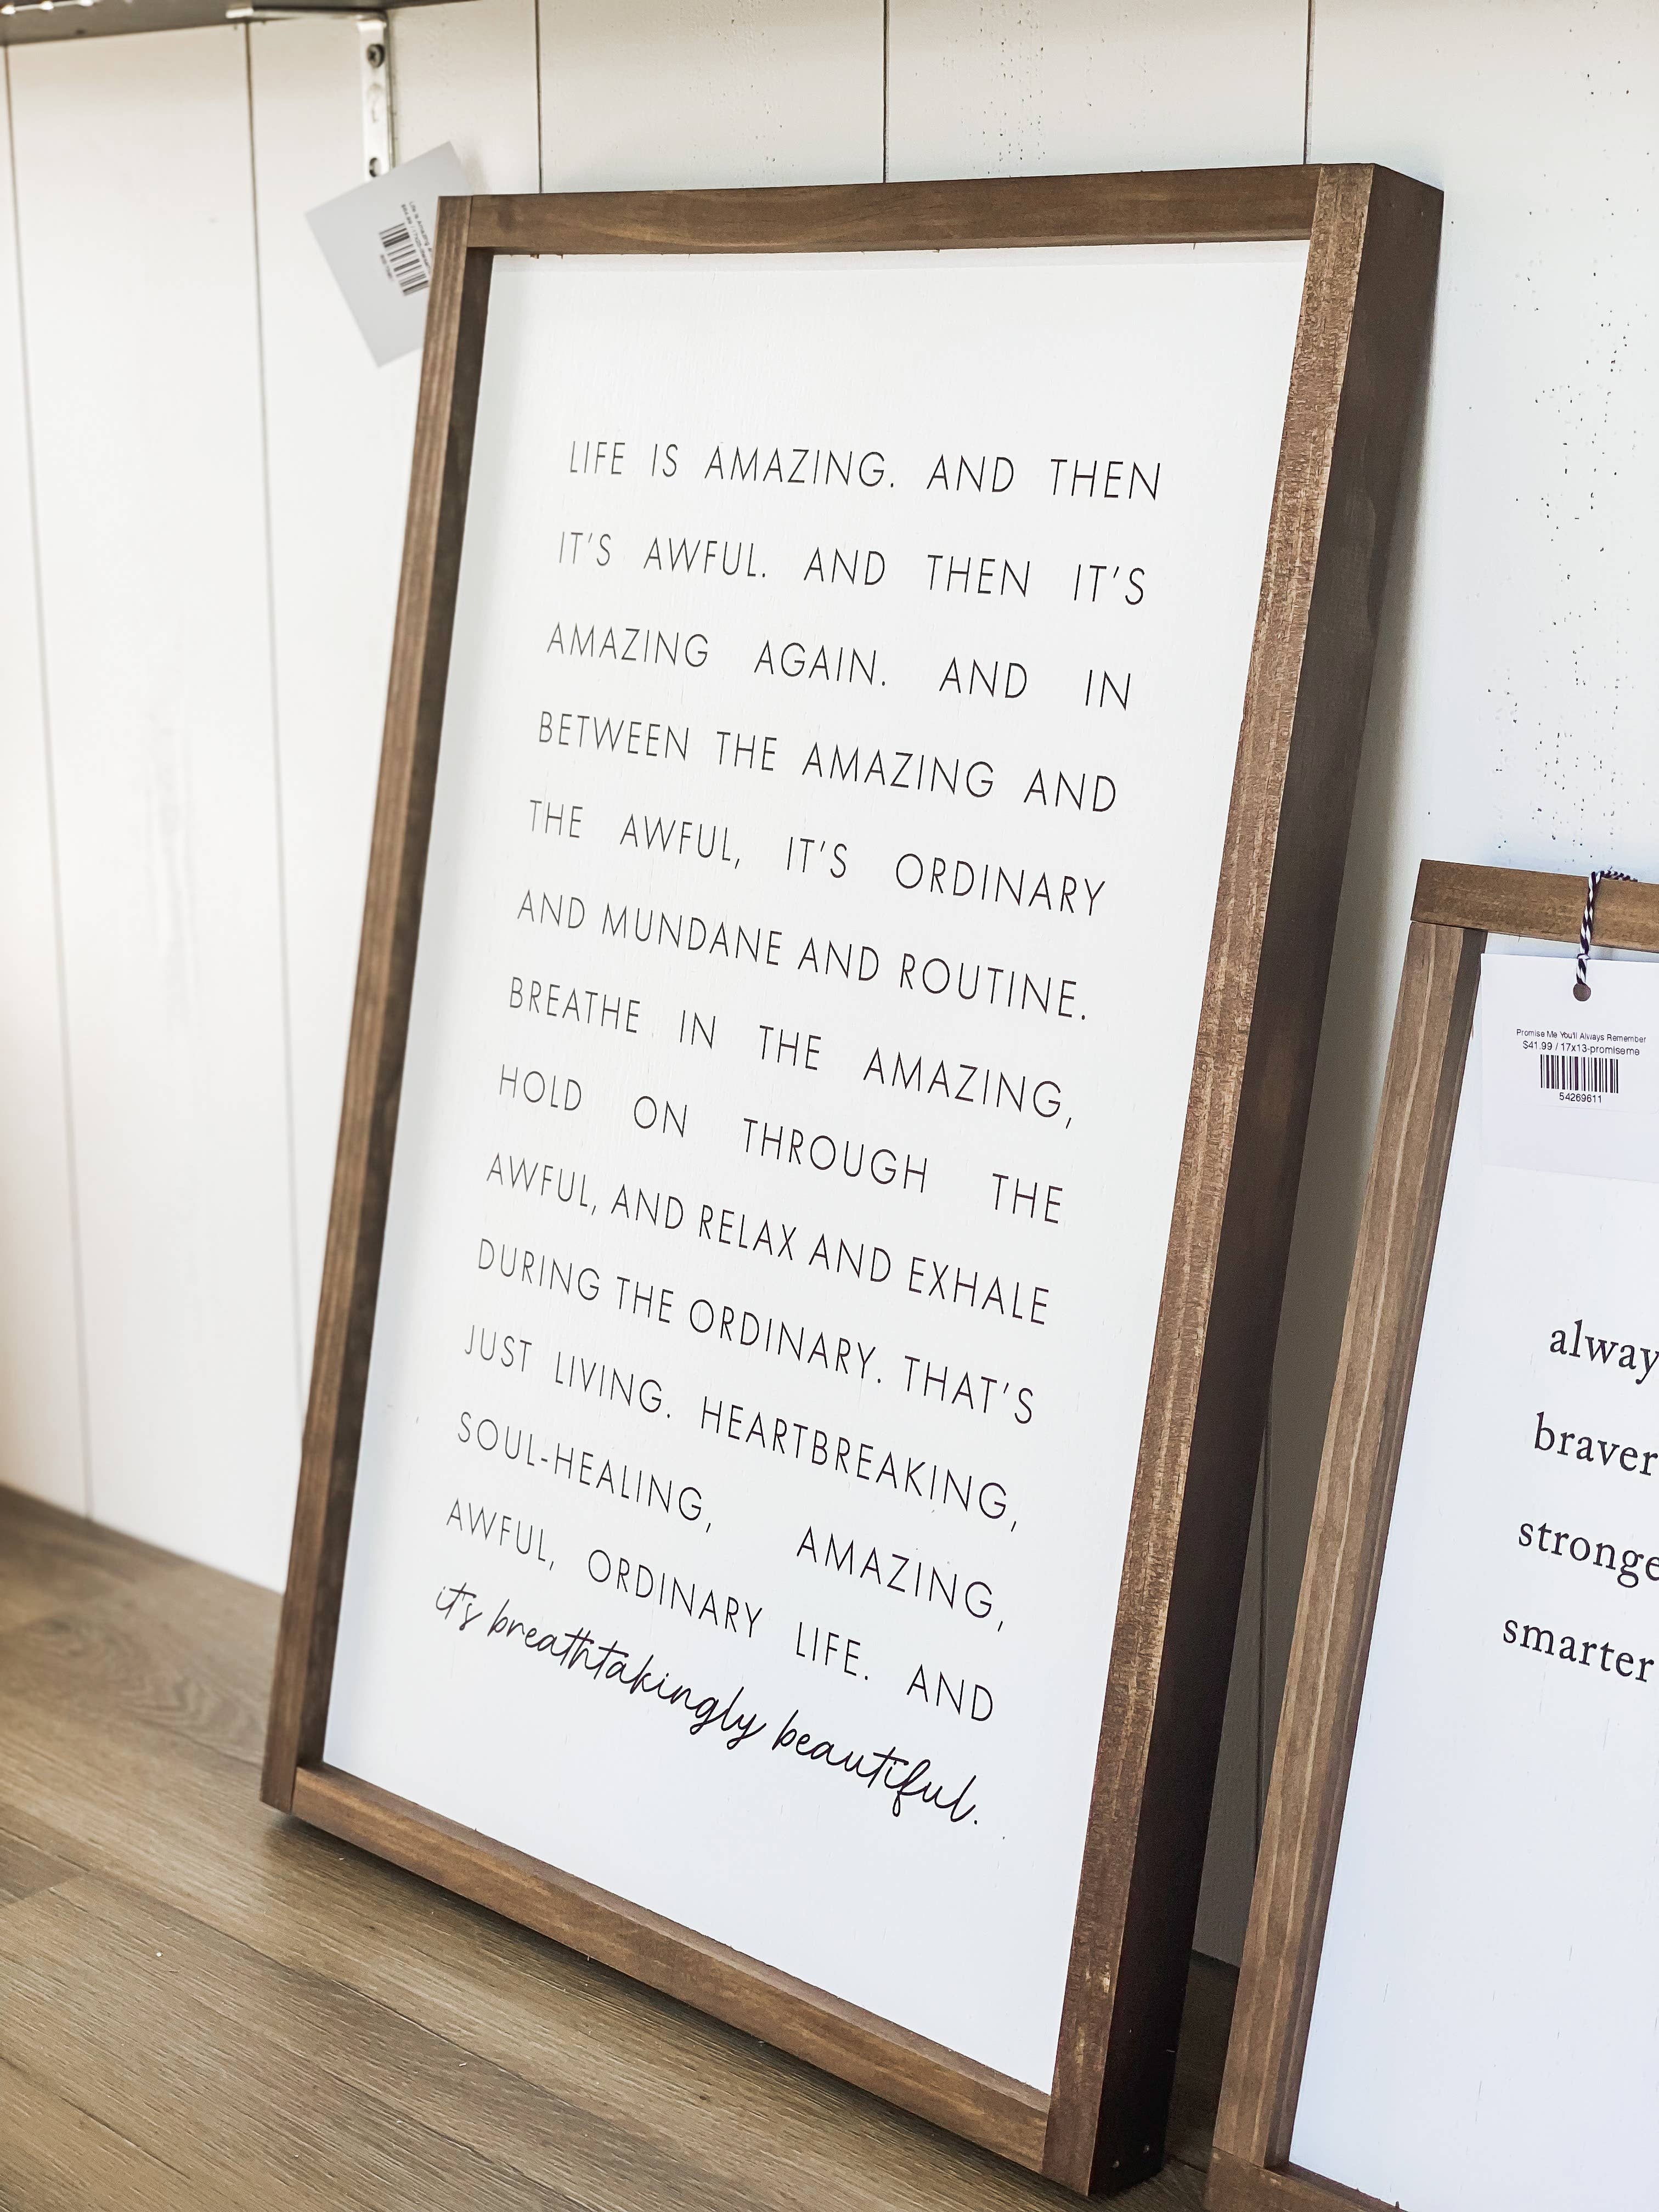 LIFE IS AMAZING. AND THEN
IT'S AWFUL. AND THEN IT'S
AMAZING AGAIN. AND IN
BETWEEN THE AMAZING AND
THE AWFUL, IT'S ORDINARY
AND MUNDANE AND ROUTINE.
BREATHE IN THE AMAZING,
HOLD ON THROUGH THE
AWFUL, AND RELAX AND EXHALE
DURING THE ORDINARY. THAT'S
JUST LIVING. HEARTBREAKING,
SOUL-HEALING, AMAZING,
AWFUL, ORDINARY LIFE. AND
it's breathtakingly beautiful.
Promise Me You'll Always Remember
$41.99 / 17x13-promiseme
54269611
alway
braver
stronge
smarter